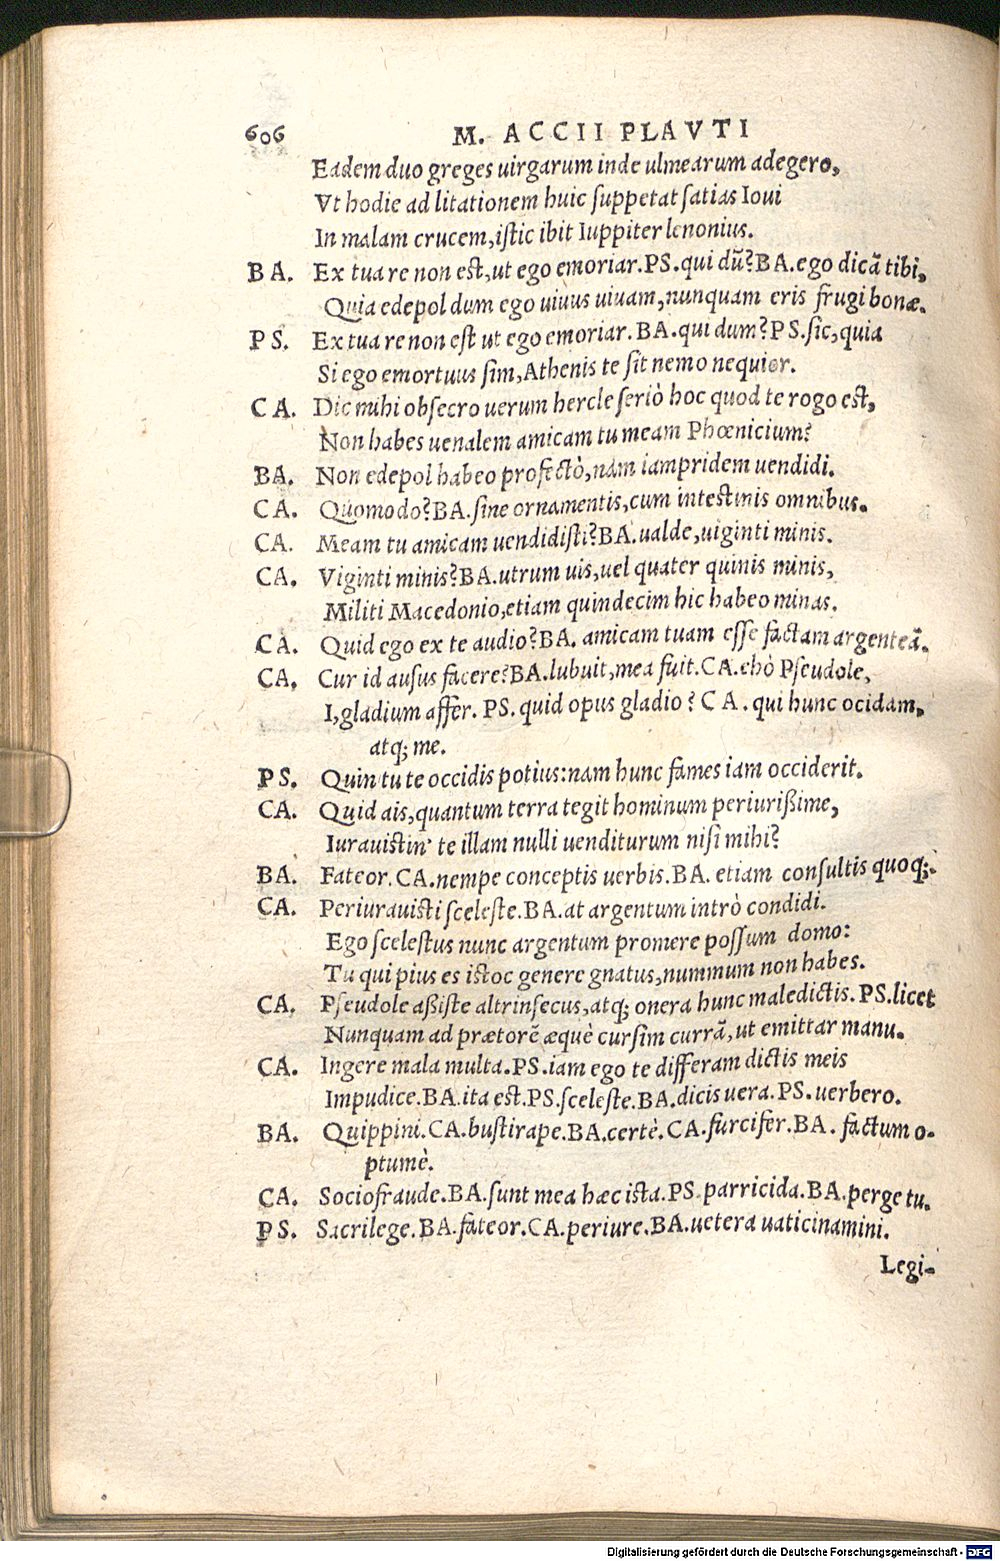 606 M. ACCII PLAVTI
Eadem duo greges uirgarum inde ulmearum adegero,
Vt hodie ad litationem huic ſuppetat ſatias Ioui
In malam crucem, iſtic ibit Iuppiter lenonius.
BA. Ex tua re non est, ut ego emoriar. PS. qui dū? BA. ego dicā tibi,
Quia edepol dum ego uiuus uiuam, nunquam eris frugi bonæ.
PS. Ex tua re non eſt ut ego emoriar. BA. qui dum? PS. ſic, quia
Si ego emortuus ſim, Athenis te ſit nemo nequior.
CA. Dic mihi obſecro uerum hercle ſeriò hoc quod te rogo est,
Non habes uenalem amicam tu meam Phœnicium?
BA. Non edepol habeo profectò, nam iampridem uendidi.
CA. Quomodo? BA. ſine ornamentis, cum intestinis omnibus.
CA. Meam tu amicam uendidiſti? BA. ualde, uiginti minis.
CA. Viginti minis? BA. utrum uis, uel quater quinis minis,
Militi Macedonio, etiam quindecim hic habeo minas.
CA. Quid ego ex te audio? BA. amicam tuam eſſe factam argenteā.
CA. Cur id auſus facere? BA. lubuit, mea fuit. CA. ehò Pſeudole,
I, gladium affer. PS. quid opus gladio? CA. qui hunc ocidam,
atq; me.
PS. Quin tu te occidis potius: nam hunc fames iam occiderit.
CA. Quid ais, quantum terra tegit hominum periurißime,
Iurauistin' te illam nulli uenditurum niſi mihi?
BA. Fateor. CA. nempe conceptis uerbis. BA. etiam conſultis quoq;.
CA. Periurauisti ſceleſte. BA. at argentum intrò condidi.
Ego ſceleſtus nunc argentum promere poſſum domo:
Tu qui pius es istoc genere gnatus, nummum non habes.
CA. Pſeudole aßiſte altrinſecus, atq; onera hunc maledictis. PS. licet
Nunquam ad prætorē æquè curſim currā, ut emittar manu.
CA. Ingere mala multa. PS. iam ego te differam dictis meis
Impudice. BA. ita est. PS. ſceleſte. BA. dicis uera. PS. uerbero.
BA. Quippini. CA. buſtirape. BA. certè. CA. furcifer. BA. factum o-
ptumè.
CA. Sociofraude. BA. ſunt mea hæc ista. PS. parricida. BA. perge tu.
PS. Sacrilege. BA. fateor. CA. periure. BA. uetera uaticinamini.
Legi-
Digitalisierung gefördert durch die Deutsche Forschungsgemeinschaft - DFG